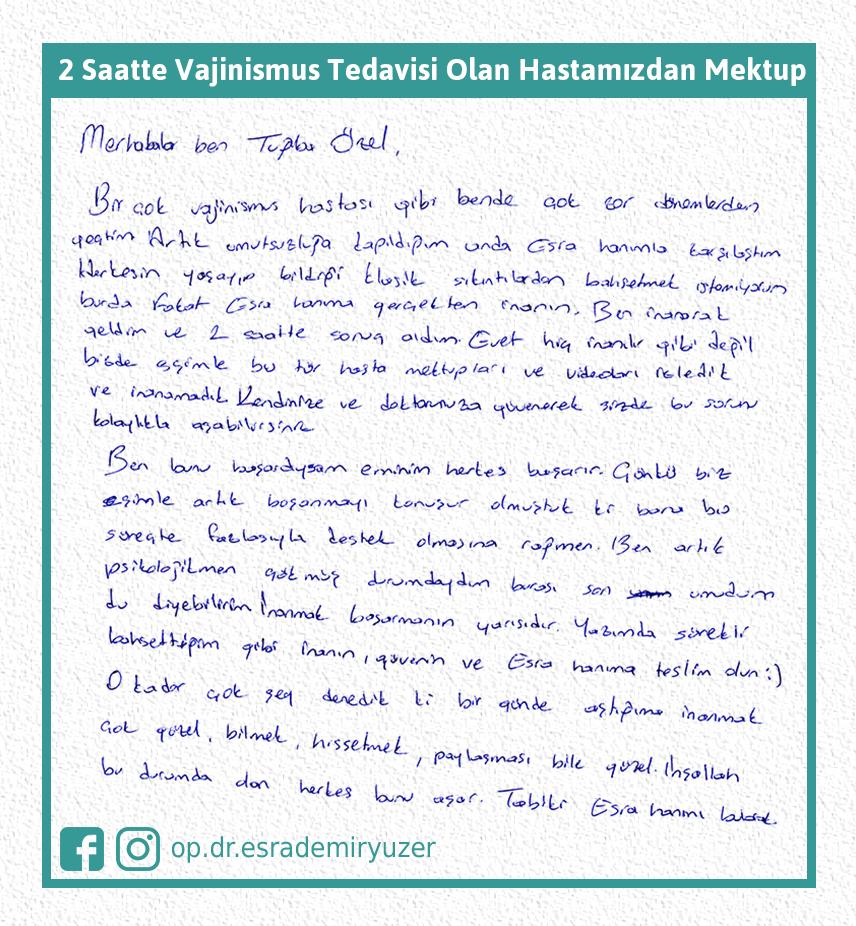 2 Saatte Vajinismus Tedavisi Olan Hastamızdan Mektup
Merhabalar ben Tuğba Özel,
Bir çok vajinismus hastası gibi bende çok zor dönemlerden
geçtim Artık umutsuzluğa kapıldığım anda Esra hanımla karşılaştım
Herkesin yaşayıp bildiği klasik sıkıntılardan bahsetmek istemiyorum
burda Fakat Esra hanıma gerçekten inanın. Ben inanarak
geldim ve 2 saatte sonuç aldım. Evet hiç inanılır gibi değil
bizde eşimle bu tür hasta mektupları ve videoları izledik
ve inanamadık Kendinize ve doktorunuza güvenerek sizde bu sorunu
kolaylıkla aşabilirsiniz
Ben bunu başardıysam eminim herkes başarır. Çünkü biz
eşimle artık boşanmayı konuşur olmuştuk ki bana bu
süreçte fazlasıyla destek olmasına rağmen. Ben artık
psikolojikmen çökmüş durumdaydım burası son umudum
du diyebilirim İnanmak başarmanın yarısıdır. Yazımda sürekli
bahsettiğim gibi inanın, güvenin ve Esra hanıma teslim olun :)
O kadar çok şey denedik ki bir günde aştığıma inanmak
çok güzel, bilmek, hissetmek, paylaşması bile güzel. İnşallah
bu durumda olan herkes bunu aşar. Tabiki Esra hanımı bularak.
op.dr.esrademiryuzer